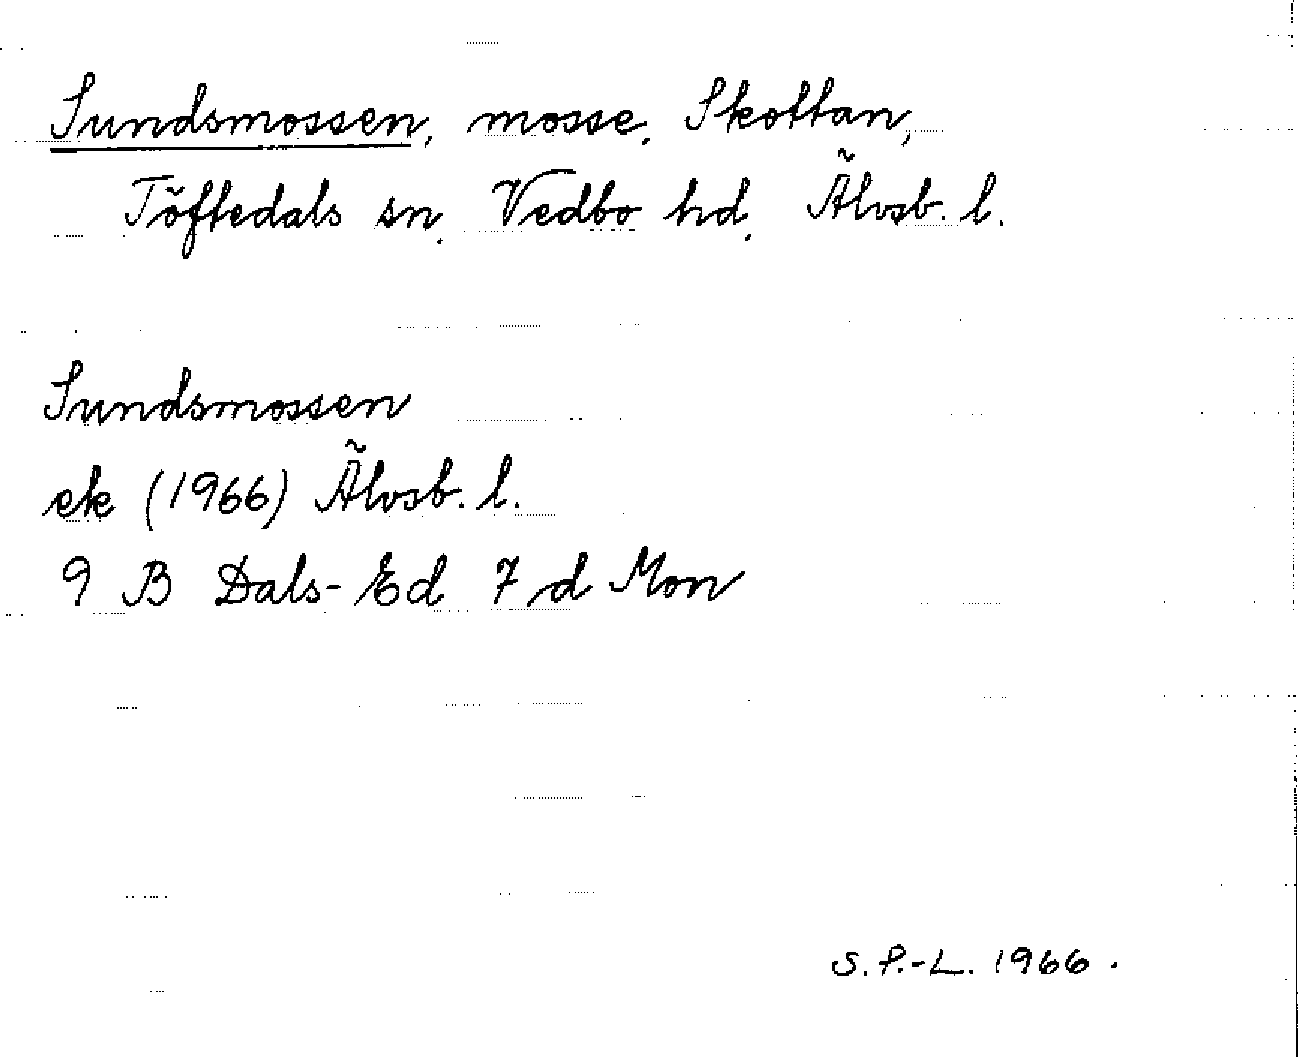 Sundsmossen, mosse, Skottan,
Töftedals sn, Vedbo hd, Älvsb. l.
Sundsmossen
ek (1966) Älvsb. l.
9 B Dals-Ed 7 d Mon
S. P.-L. 1966.